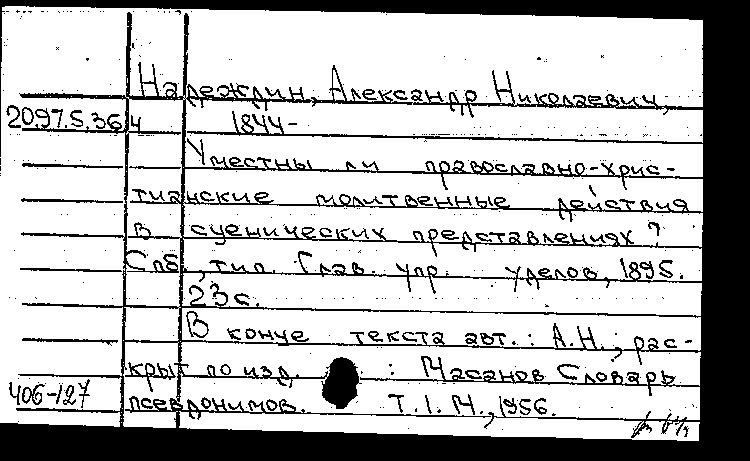 Надеждин, Александр Николаевич,
20.97.5.36 4 1844-
Уместны ли православно-хрис-
тианские молитвенные действия
в сценических представлениях?
Спб., тип. Глав. упр. уделов, 1895.
23 с.
В конце текста авт.: А.Н.; рас-
крыт по изд. : Масанов Словарь
406-127 псевдонимов. Т.1. М., 1956.